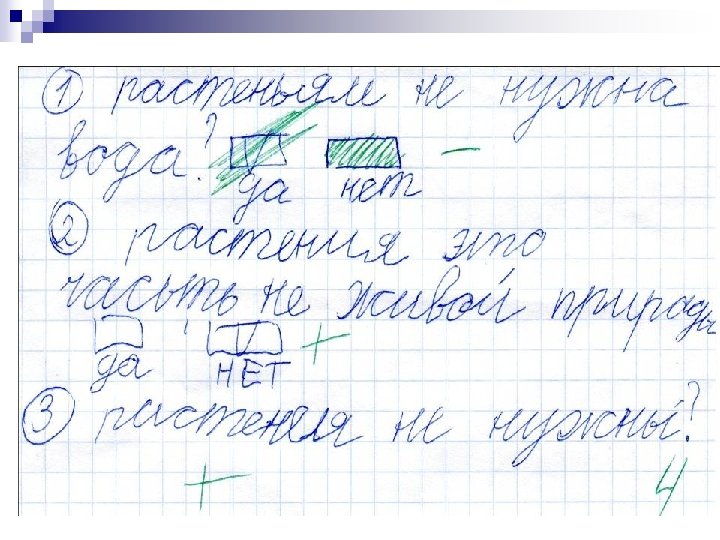 1 растеньям не нужна
вода?
да нет -
2 растения это
часьть не живой природы
да НЕТ +
3 ристенеля не нужны?
+ 4